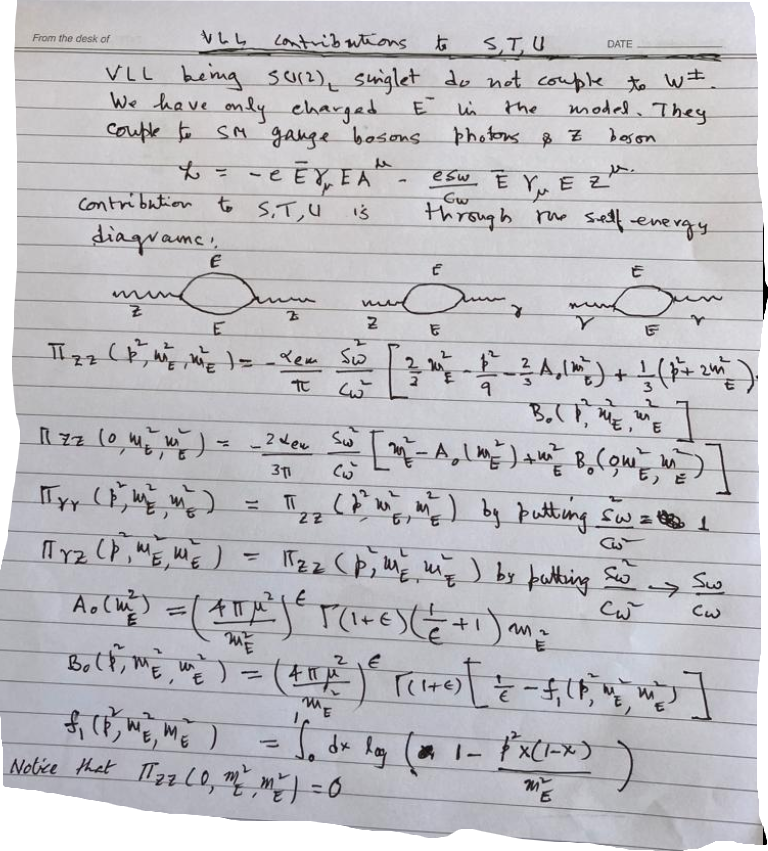 From the desk of VLL contributions to S,T,U DATE
VLL being SU(2)_L singlet do not couple to W^±.
We have only charged E^- in the model. They
couple to SM gauge bosons photons & Z boson
ℒ = -e Ē γ_μ E A^μ - (e s_w / c_w) Ē γ_μ E Z^μ.
contribution to S,T,U is through the self-energy
diagrams:
E E E
Z Z Z γ γ γ
E E E
Π_ZZ (p², m_E², m_E²) = -(α_em/π) (s_w²/c_w²) [ (2/3) m_E² - p²/9 - (2/3) A₀(m_E²) + (1/3)(p² + 2m_E²).
B₀(p², m_E², m_E²) ]
Π_ZZ (0, m_E², m_E²) = -(2α_em/3π) (s_w²/c_w²) [ m_E² - A₀(m_E²) + m_E² B₀(0, m_E², m_E²) ]
Π_γγ (p², m_E², m_E²) = Π_ZZ (p², m_E², m_E²) by putting s_w²/c_w² = 1
Π_γZ (p², m_E², m_E²) = Π_ZZ (p², m_E², m_E²) by putting s_w²/c_w² → s_w/c_w
A₀(m_E²) = (4πμ²/m_E²)^ϵ Γ(1+ϵ) (1/ϵ + 1) m_E²
B₀(p², m_E², m_E²) = (4πμ²/m_E²)^ϵ Γ(1+ϵ) [ 1/ϵ - f₁(p², m_E², m_E²) ]
f₁(p², m_E², m_E²) = ∫₀¹ dx log ( 1 - p²x(1-x)/m_E² )
Notice that Π_ZZ (0, m_E², m_E²) = 0